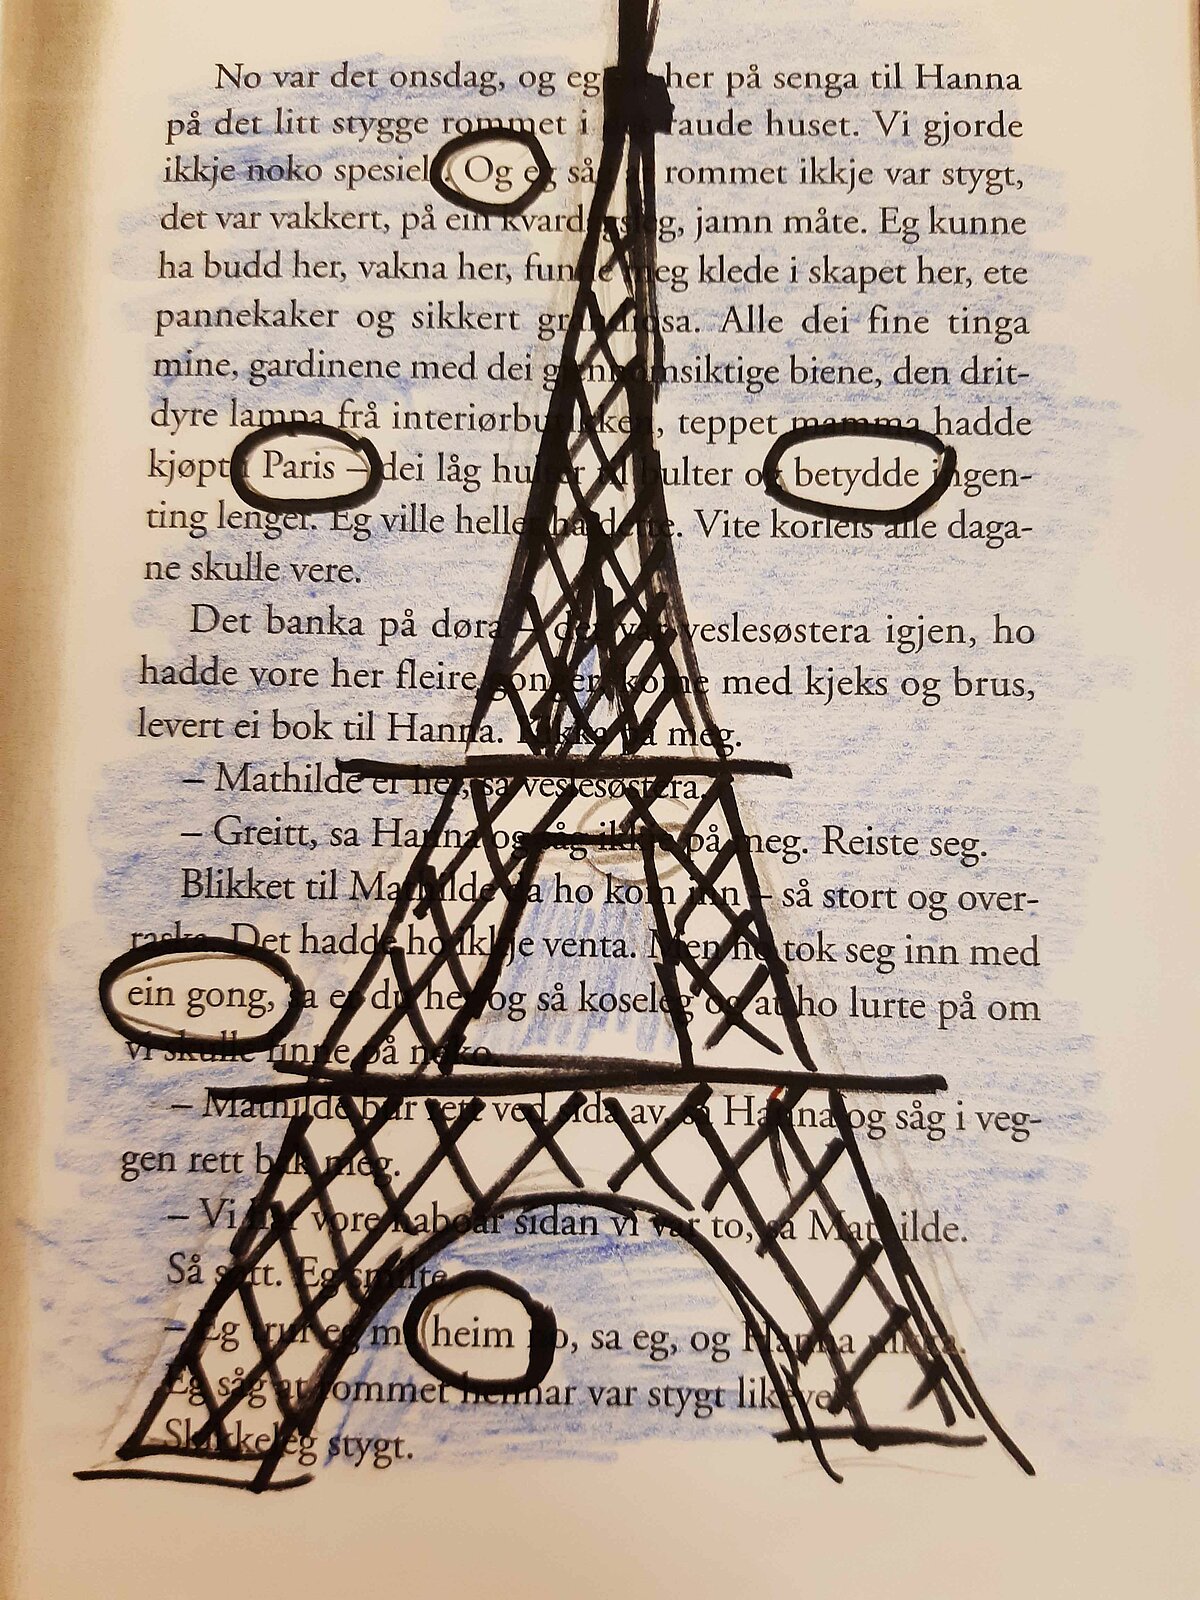 No var det onsdag, og eg her på senga til Hanna
på det litt stygge rommet i raude huset. Vi gjorde
ikkje noko spesielt. Og eg såg rommet ikkje var stygt,
det var vakkert, på ein kvardagsleg, jamn måte. Eg kunne
ha budd her, vakna her, funne meg klede i skapet her, ete
pannekaker og sikkert grandiosa. Alle dei fine tinga
mine, gardinene med dei gjennomsiktige biene, den drit-
dyre lampa frå interiørbutikken, teppet mamma hadde
kjøpt i Paris – dei låg hulter til bulter og betydde ingen-
ting lenger. Eg ville heller ha dette. Vite korleis alle daga-
ne skulle vere.
Det banka på døra – det var veslesøstera igjen, ho
hadde vore her fleire gonger, kome med kjeks og brus,
levert ei bok til Hanna. Kikka på meg.
– Mathilde er her, sa veslesøstera.
– Greitt, sa Hanna og såg ikkje på meg. Reiste seg.
Blikket til Mathilde da ho kom inn – så stort og over-
raska. Det hadde ho ikkje venta. Men ho tok seg inn med
ein gong, sa er du her og så koseleg og at ho lurte på om
vi skulle finne på noko.
– Mathilde bur rett ved sida av, sa Hanna og såg i veg-
gen rett bak meg.
– Vi har vore naboar sidan vi var to, sa Mathilde.
Så søtt. Eg smilte.
– Eg trur eg må heim no, sa eg, og Hanna nikka.
Eg såg at rommet hennar var stygt likevel.
Skikkeleg stygt.